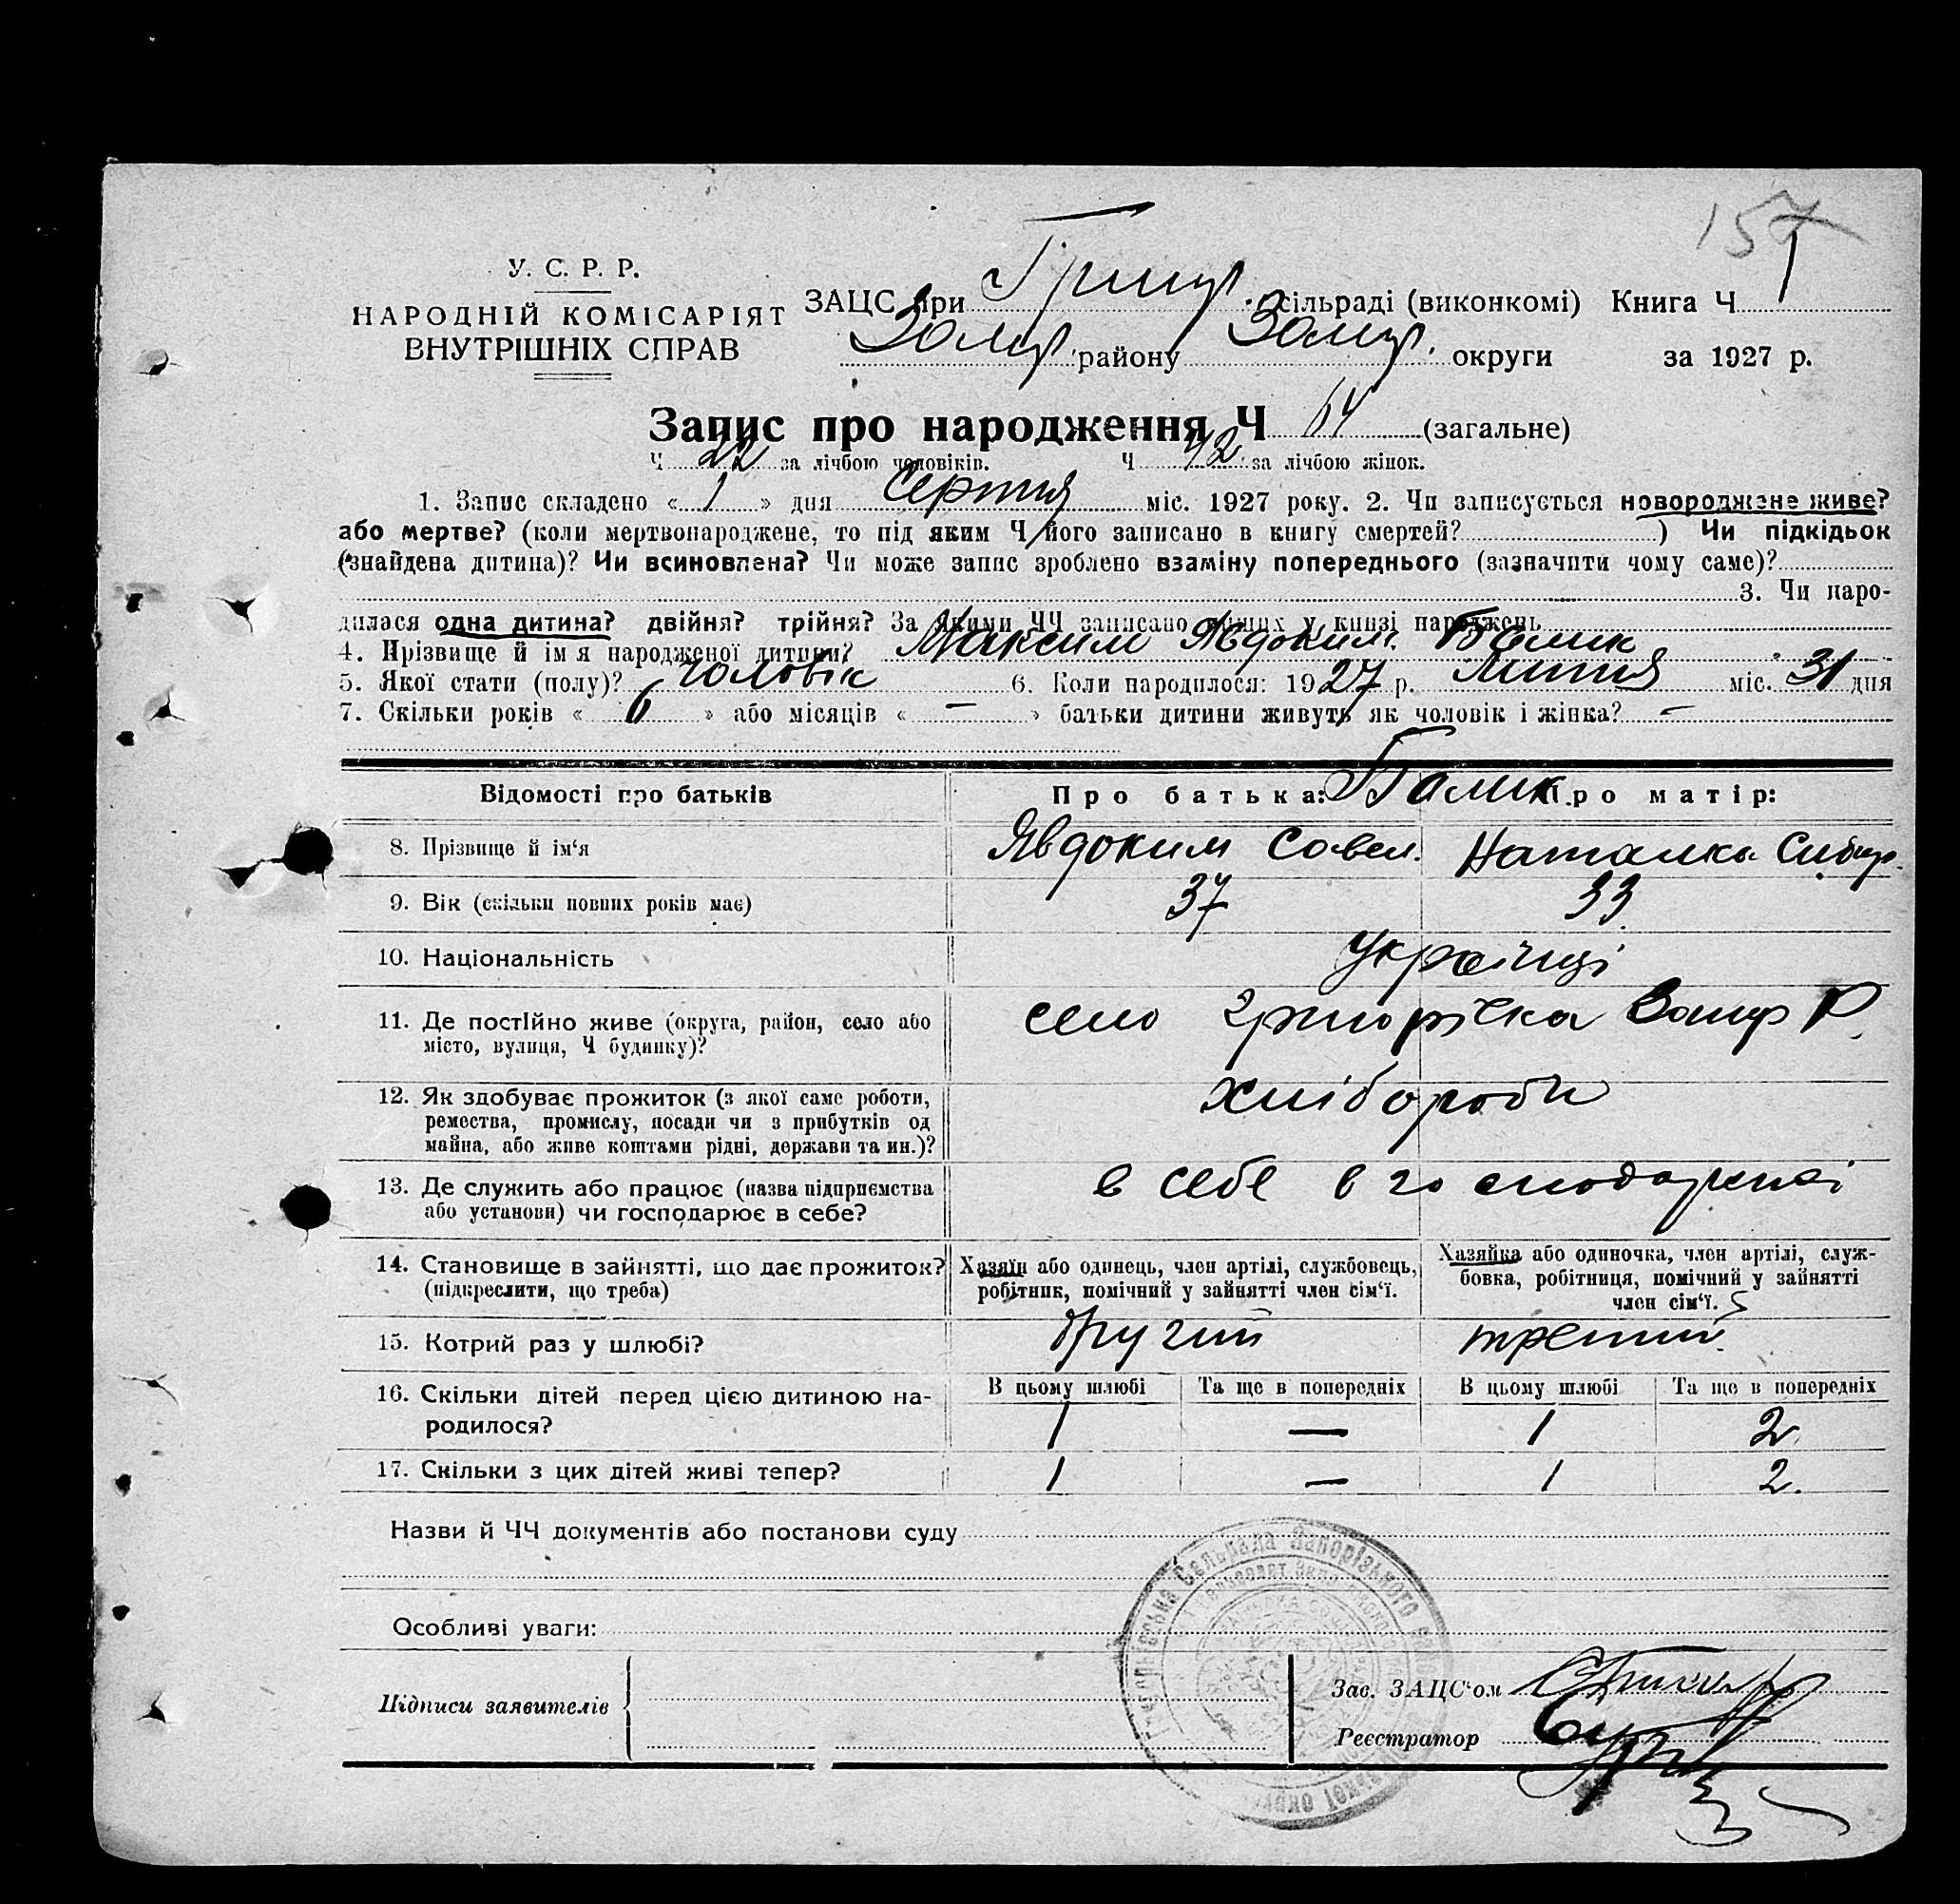 157
У. С. Р. Р.
НАРОДНІЙ КОМІСАРІЯТ
ВНУТРІШНІХ СПРАВ
ЗАЦС при сільраді (виконкомі) Книга Ч 1
району округи за 1927 р.
Запис про народження Ч 64 (загальне)
Ч 22 за лічбою чоловіків. Ч 42 за лічбою жінок.
1. Запис складено « 1 » дня Серпня міс. 1927 року. 2. Чи записується новороджене живе?
або мертве? (коли мертвонароджене, то під яким Ч його записано в книгу смертей? ) Чи підкідьок
(знайдена дитина)? Чи всиновлена? Чи може запис зроблено взаміну попереднього (зазначити чому саме)?
3. Чи наро-
дилася одна дитина? двійня? трійня? За якими ЧЧ записано инших у книзі народжень
4. Прізвище й ім'я народженої дитини? Максим Явдоким. Балик
5. Якої стати (полу)? чоловік 6. Коли народилося: 1927 р. Липня міс. 31 дня
7. Скільки років « 6 » або місяців « — » батьки дитини живуть як чоловік і жінка? —
Відомості про батьків
Про батька: Балик Про матір:
8. Прізвище й ім'я Явдоким Савел. Наталка
9. Вік (скільки повних років має) 37 33
10. Національність Українці
11. Де постійно живе (округа, район, село або
місто, вулиця, Ч будинку)? село Р.
12. Як здобуває прожиток (з якої саме роботи,
ремества, промислу, посади чи з прибутків од
майна, або живе коштами рідні, держави та ин.)? хлібороби
13. Де служить або працює (назва підприємства
або установи) чи господарює в себе? в себе в господарстві
14. Становище в зайнятті, що дає прожиток?
(підкреслити, що треба)
Хазяїн або одинець, член артілі, службовець,
робітник, помічний у зайнятті член сім'ї.
Хазяйка або одиночка, член артілі, служ-
бовка, робітниця, помічний у зайнятті
член сім'ї.
15. Котрий раз у шлюбі? другий третий
16. Скільки дітей перед цією дитиною на-
родилося?
В цьому шлюбі Та ще в попередніх В цьому шлюбі Та ще в попередніх
1 — 1 2
17. Скільки з цих дітей живі тепер? 1 — 1 2.
Назви й ЧЧ документів або постанови суду
Особливі уваги:
Підписи заявителів
Зав. ЗАЦС'ом
Реєстратор